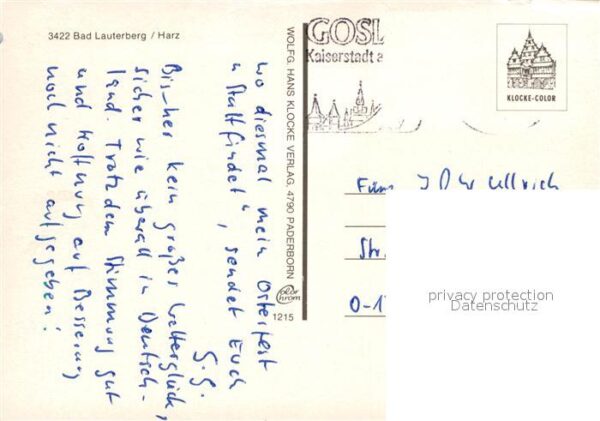 3422 Bad Lauterberg / Harz
wo diesmal mein Osterfest
"stattfindet", sendet Euch
G.G.
Bisher kein großes Wetterglück,
sicher wie überall in Deutsch-
land. Trotzdem Stimmung gut
und Hoffnung auf Besserung
noch nicht aufgegeben!
WOLFG. HANS KLOCKE VERLAG, 4790 PADERBORN
color
chrom
1215
GOSL
Kaiserstadt a
KLOCKE-COLOR
Ullrich
Str.
O-1
privacy protection
Datenschutz